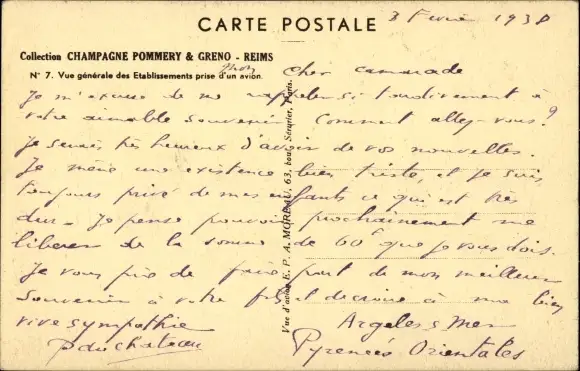 CARTE POSTALE
3 Février 1938
Collection CHAMPAGNE POMMERY & GRENO - REIMS
N° 7. Vue générale des Etablissements prise d'un avion.
Mon
cher camarade
Je m'excuse de me rappeler si tardivement à
votre aimable souvenir. Comment allez-vous ?
Je serais très heureux d'avoir de vos nouvelles.
Je mène une existence bien triste, et je suis
toujours privé de mes enfants ce qui est très
dur. Je pense pouvoir prochainement me
libérer de la somme de 60 que je vous dois.
Je vous prie de faire part de mon meilleur
souvenir à votre fils et de croire à ma bien
vive sympathie
Argeles s Mer
Pyrenées Orientales
P duchateau
Vue d'avion E. P. A. MOREAU, 63, boul. Sérurier, Paris.